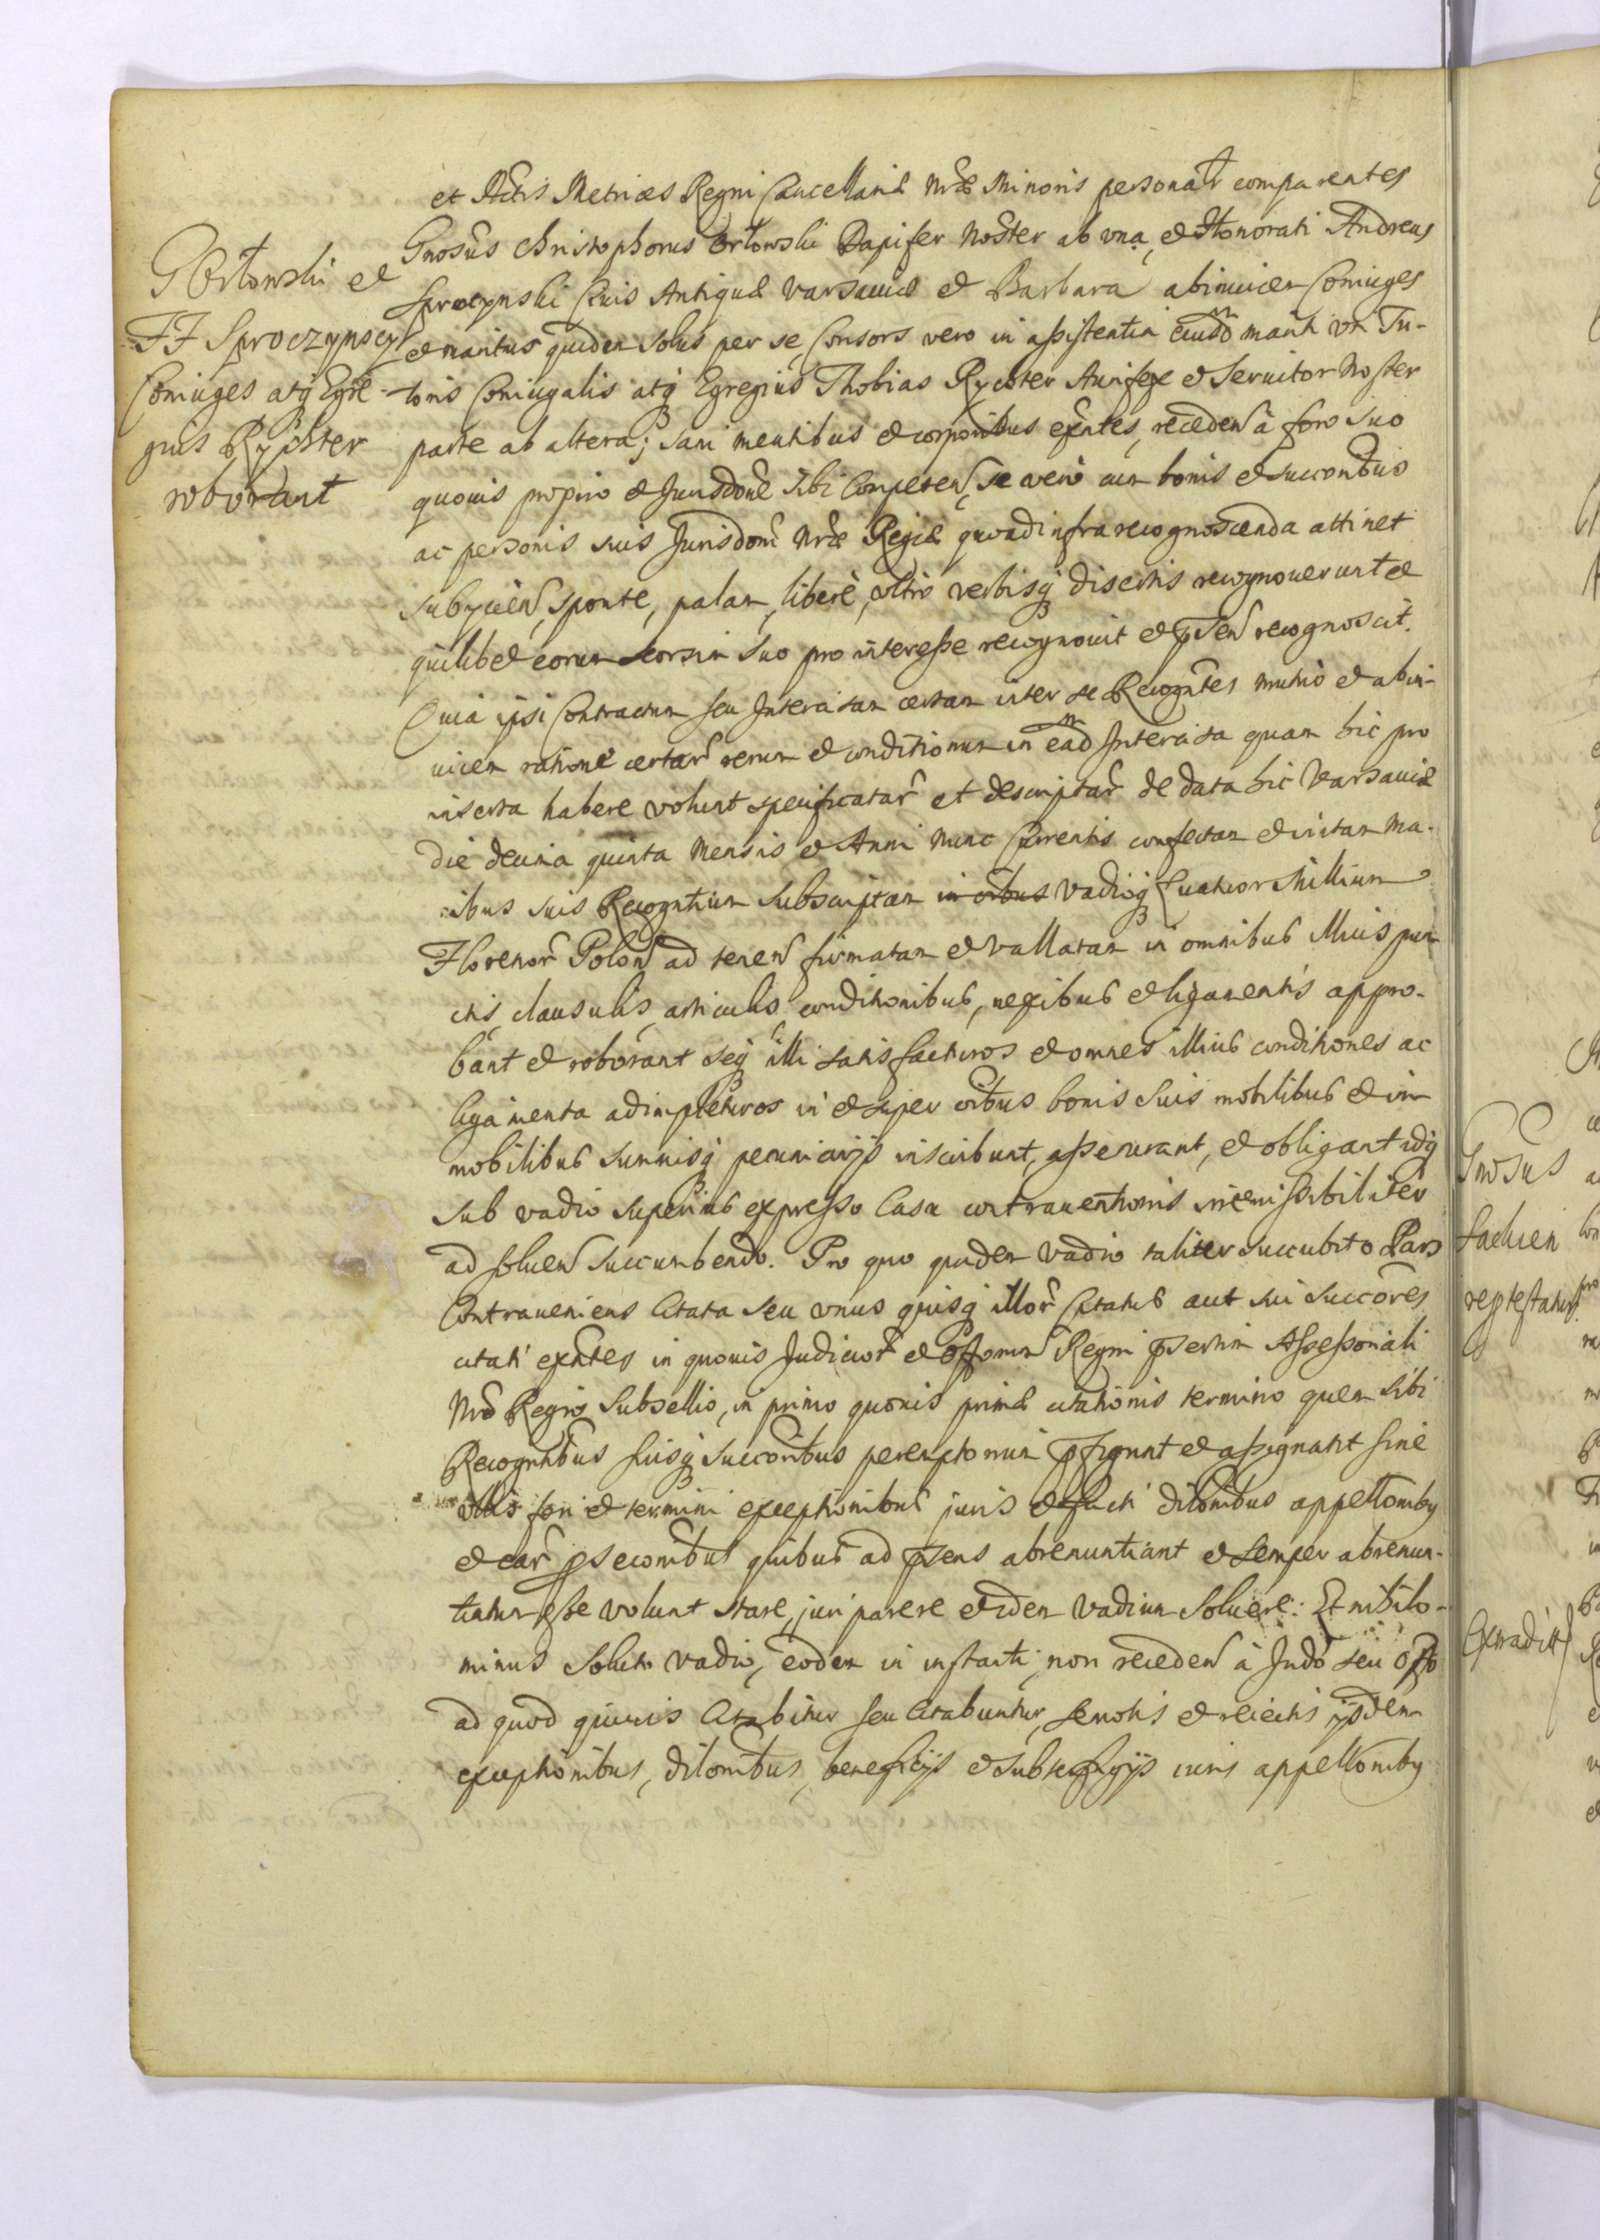 et Actis Metrices Regni Cancellariæ Nræ Minoris personalr comparentes
Gnosus Christophorus Orłowski Dapifer Noster ab vna, et Honorati Andreas
Sproczynski Ciuis Antiquæ Varsauiæ et Barbara abinuicem Coniuges
et maritus quidem solus per se, Consors vero in assistentia eiusdm mariti vti Tu-
toris Coniugalis atq Egregius Thobias Rychter Aurifex et Seruitor Noster
parte ab altera; sani mentibus et corporibus exntes, receden à foro suo
quouis proprio et Jurisdone sibi Competen, se vero cum bonis et succoribus
ac personis suis Jurisdoni Nræ Regiæ quoad infra recognoscenda attinet
subÿcien, sponte, palam, libere, vltro verbisq disertis recognouerunt et
quilibet eorum seorsim suo pro interesse recognouit et pnsen recognoscit.
Quia ipsi Contractum seu Intercisam certam inter se Recogntes mutuò et abin-
uicem ratione certar rerum et conditionum in eadm Intercisa quam hic pro
inserta habere volunt specificatar et descriptar de data hic Varsauiæ
die decima quinta Mensis et Anni Nunc Currentis confectam et vtirtam Ma-
ibus suis Recogntium subscriptam in oibus vadioq Quatuor Millium
Florenor Polon ad tenen firmatam et vallatam in omnibus illius pun-
ctis, clausulis, articulis conditionibus, nexibus et ligamentis appro-
bant et roborant seq illi satisfacturos et omnes illius conditiones ac
ligamenta adimpleturos in et super oibus bonis suis mobilibus et im-
mobilibus summisq pecuniarÿs inscribunt, assecurant, et obligant idq
sub vadio superius expresso Casu contrauentionis irremissibiliter
ad soluen succumbendo. Pro quo quidem vadio taliter succubito Pars
Contraueniens Citata seu vnus quisq illor Citatus aut sui succores
citati exntes in quouis Judicior et Offorum Regni pnsertim Assessoriali
Nro Regio Subsellio, in primo quouis primæ citationis termino quem sibi
Recogntibus suisq succoribus peremptorium pfigunt et assignant sine
vllis fori et termini exceptionibus juris et facti dilonibus appellonibq
et ear psecoribus quibus ad pnsens abrenuntiant et semper abrenun-
tiatum esse volunt stare, juri parere et idem vadium Soluere: Et nihilo-
minus soluto vadio, eodem in instanti, non receden à Judo seu offo
ad quod quiuis Citabitur seu Citabuntur, semotis et reiectis ÿsdem
exceptionibus, dilonibus, beneficÿs et subterfugÿs iuris appellonibq
G Orłowski et
FF Sproczynscÿ
Coniuges atq Egre-
gius Rÿchter
roborant
Gnosus
Sachsen
reptestatur
Extradit